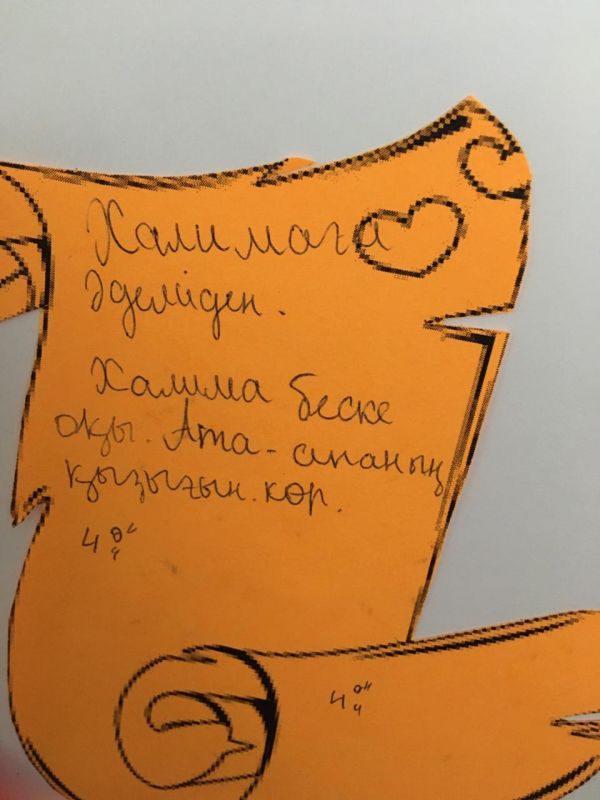 Халимаға
Әделиден.
Халима беске
оқы. Ата-апаның
қызығын.көр.
4 "ә"
4
4 "ә"
ч